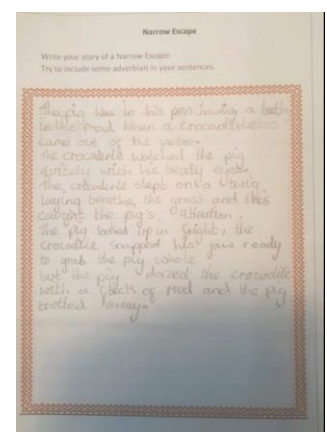 Narrow Escape
Write your story of a Narrow Escape.
Try to include some adverbials in your sentences.
The pig was in his pen having a bath
in the mud when a crocodile
came out of the water.
The crocodile watched the pig
quitely with his beady eyes.
The crocodile stept on a
laying beneths the grass and this
caught the pig's attention.
The pig looked up in fright, the
crocodile snapped his jaws ready
to grab the pig whole
but the pig dazed the crocodile
with a flick of Mud and the pig
trotted away.